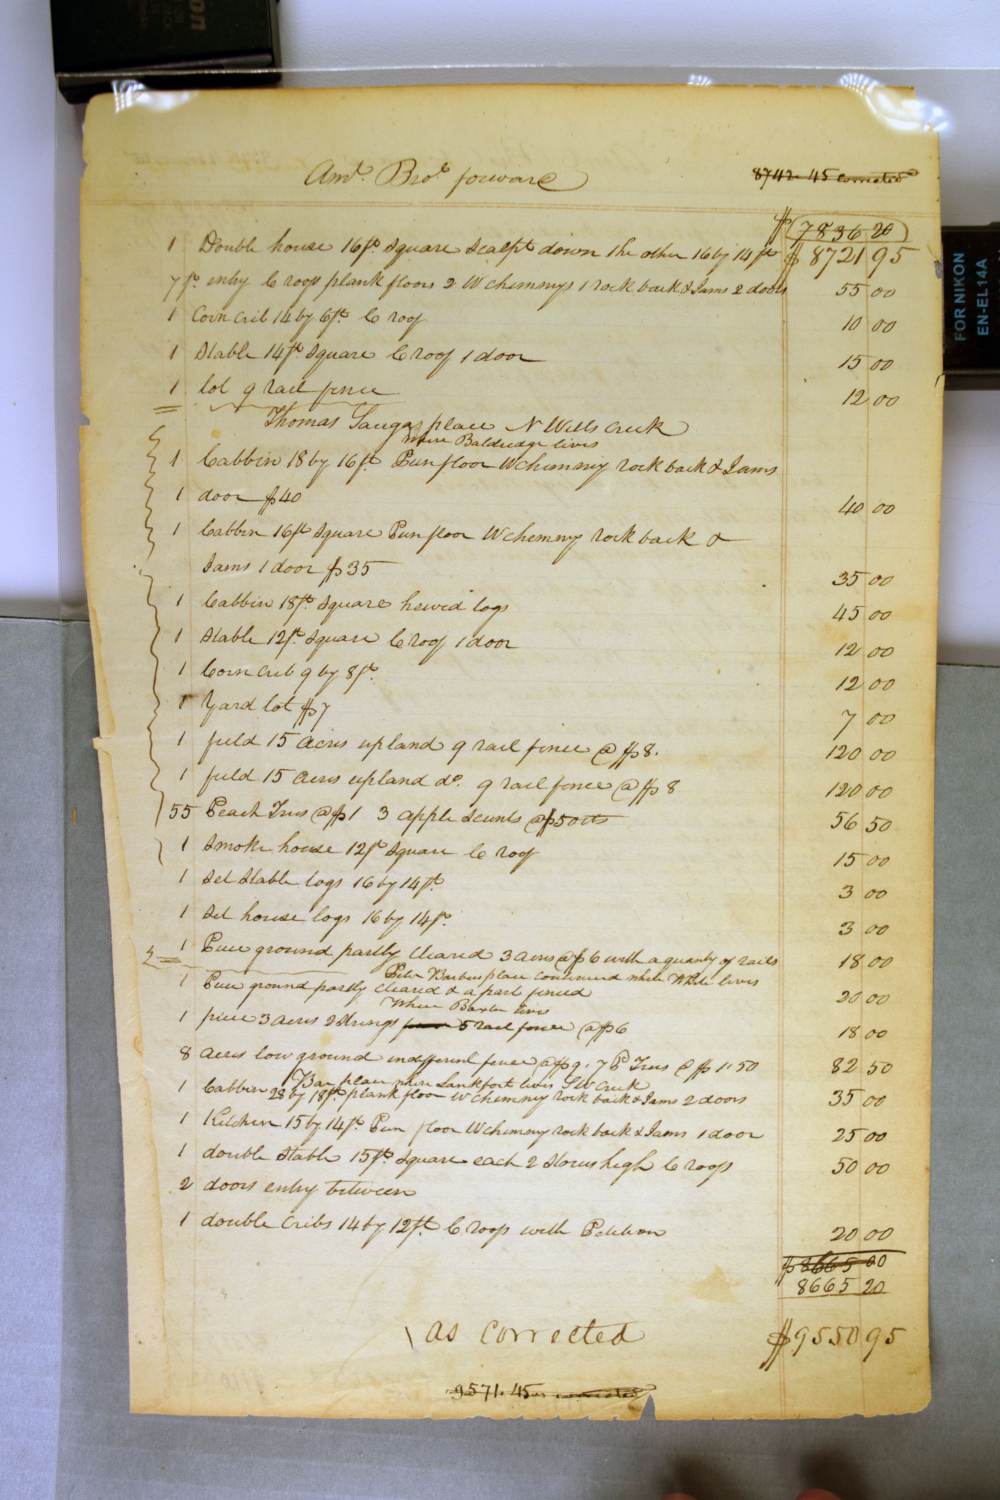 Amt. Bro.t forward
8742.45 corrected
$ 7836 20
1 Double house 16ft. square scalpt down the other 16 by 14 ft $ 8721 95
7 ft. entry C roofs plank floors 2 W chimneys 1 rock back & Jams 2 doors 55 00
1 Corn crib 14 by 6ft. C roof 10 00
1 Stable 14ft. square C roof 1 door 15 00
1 lot 9 rail fence 12 00
Thomas place N Wills Creek
where Baldridge lives
1 Cabbin 18 by 16ft. Pun floor W chimny rock back & Jams
1 door $40 40 00
1 Cabbin 16ft square Pun floor W chemny rock back &
Jams 1 door $35 35 00
1 Cabbin 18ft. square hewed logs 45 00
1 Stable 12ft. square C roof 1 door 12 00
1 Corn crib 9 by 8ft. 12 00
1 Yard lot $7 7 00
1 field 15 acres upland 9 rail fence @ $8. 120 00
1 field 15 acres upland do. 9 rail fence @ $8 120 00
55 Peach Trees @ $1 3 apple @ 50 cts 56 50
1 Smoke house 12ft square C roof 15 00
1 Set Stable logs 16 by 14ft. 3 00
1 Set house logs 16 by 14ft. 3 00
1 Piece ground partly cleared 3 acres @ $6 with a quanty of rails 18 00
Peter place continued where White lives
1 Piece ground partly cleared & a part fenced 20 00
Where Baxter lives
1 piece 3 acres 2 strings 5 rail fence @ $6 18 00
8 acres low ground indifferent fence @ $9. 7 P Trees @ $1.50 82 50
place where Lankford lives Creek
1 Cabbin 28 by 18ft. plank floor W chemny rock back & Jams 2 doors 35 00
1 Kitchen 15 by 14ft. Pun floor W chemny rock back & Jams 1 door 25 00
1 double Stable 15ft. square each 2 Stories high C roofs 50 00
2 doors entry between
1 double Cribs 14 by 12ft. C roofs with Petition 20 00
$ 8665 00
8665 20
as corrected $ 9550 95
9571.45 as corrected
FOR NIKON
EN-EL14A